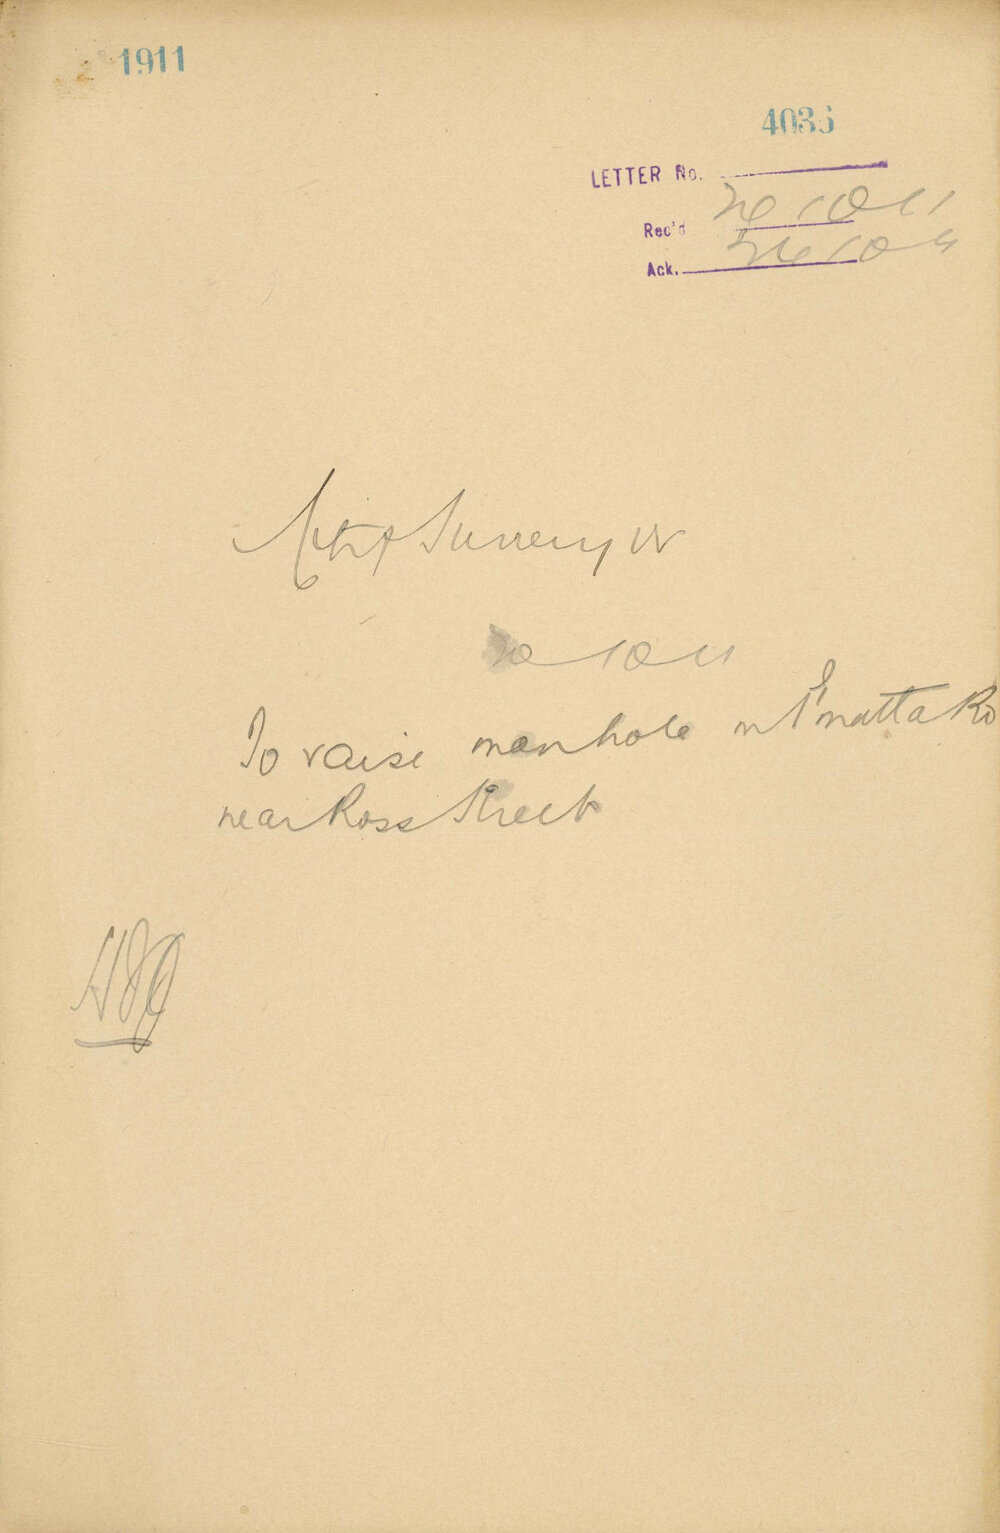 1911
4036
LETTER No.
Rec'd 10 11
Ack. 10 11
City Surveyor
10 11
To raise manhole in P'matta Rd
near Ross Street